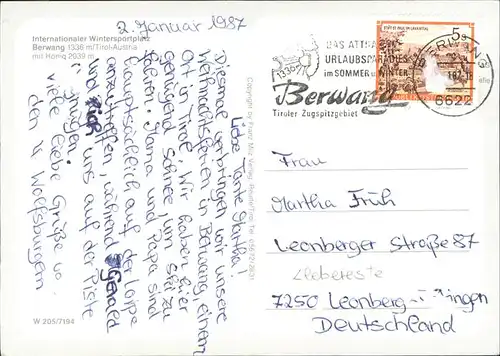 2. Januar 1987
Internationaler Wintersportplatz
Berwang 1336 m/Tirol-Austria
mit Hönig 2039 m
Liebe Tante Martha!
Diesmal verbringen wir unsere
Weihnachtsferien in Berwang, einem
Ort in Tirol. Wir haben hier
genügend Schnee, um Ski zu
fahren. Mama und Papa sind
hauptsächlich auf der Loipe
anzutreffen, während Gerald
und uns auf der Piste
vergnügen.
Viele liebe Grüße von
den 4 Wolfsburgern
W 205/7194
1336m
DAS ATTRAKTIVE
URLAUBSPARADIES
im SOMMER u. WINTER
Berwang
Tiroler Zugspitzgebiet
5s
BERWANG
6622
Frau
Martha Früh
Leonberger Straße 87
Klebereste
7250 Leonberg - Eltingen
Deutschland